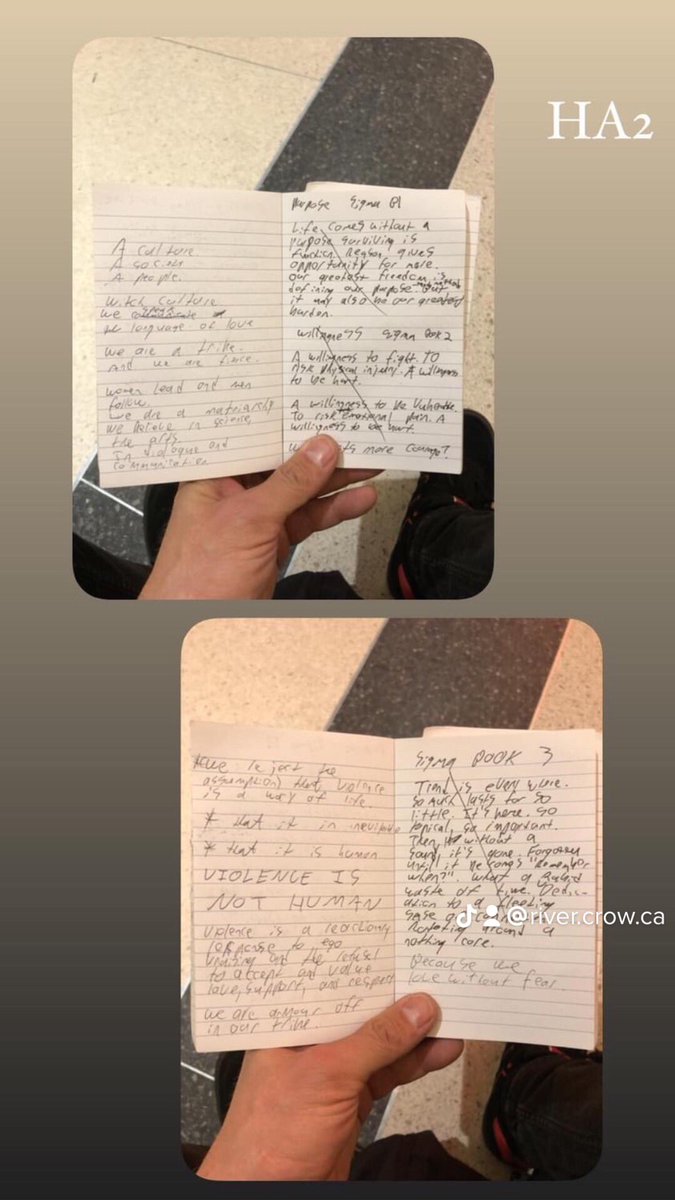 HA2
A culture.
A society
A people.
Witch culture
we speak
the language of love
we are a tribe.
and we are fierce.
women lead and men
follow.
we are a matriarchy
we believe in science,
the arts.
In dialogue and
communication
Purpose Sigma B1
Life comes without a
purpose surviving is
function. Reason gives
opportunity for more.
our greatest freedom is
defining our purpose. But
it may also be our greatest
burden.
willingness Sigma Book 2
A willingness to fight. To
risk physical injury. A willingness
to be hurt.
A willingness to be vulnerable.
To risk emotional pain. A
willingness to be hurt.
more courage?
*we reject the
assumption that violence
is a way of life.
* that it in inevitable
* that it is human
VIOLENCE IS
NOT HUMAN
violence is a
response to ego
and the refusal
to accept and value
love, support, and respect
we are armour off
in our tribe.
Sigma BOOK 3
Time is every where.
So much lasts for so
little. It's here. So
topical, so important.
Then without a
sound it's gone. Forgotten
until it becomes "Remember
when?". What a
waste of time. Dedic-
ation to a fleeting
sense of
Rotating around a
nothing core.
Because we
love without fear.
@river.crow.ca